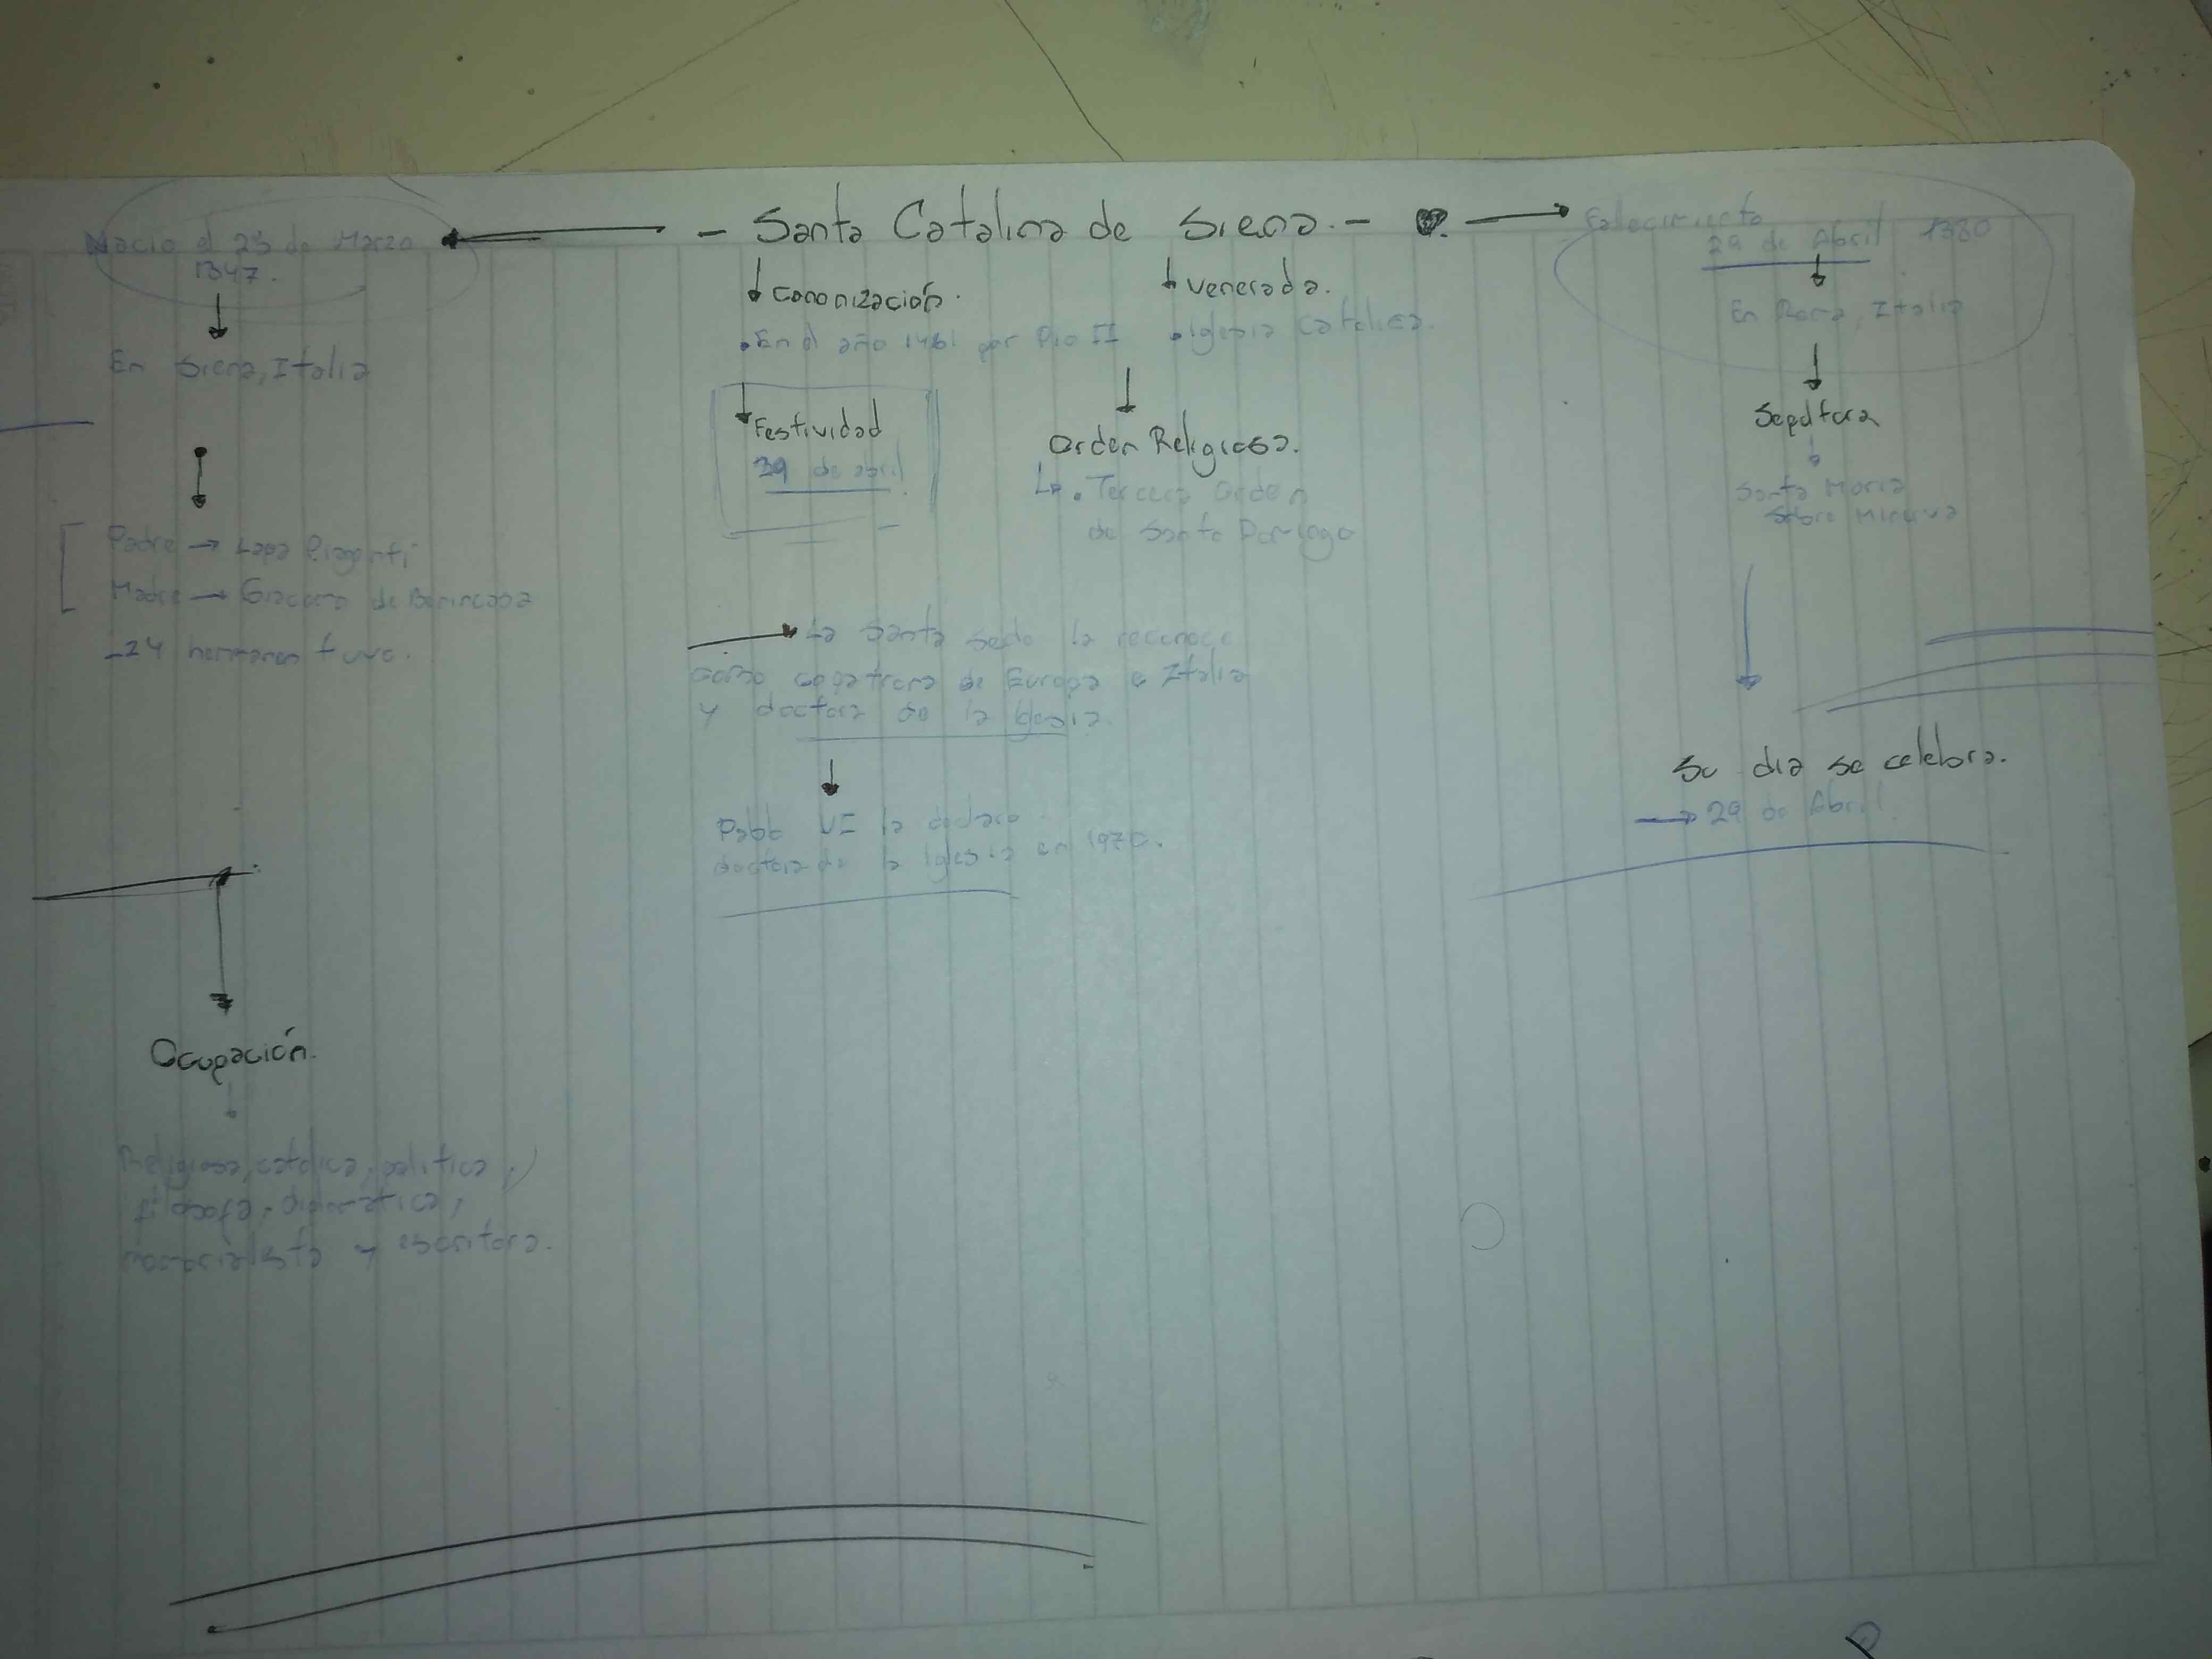 - Santa Catalina de Siena. -
Nacio el 25 de Marzo
1347.
En Siena, Italia
Padre → Lapa Piagenti
Madre → Giacomo de Benincasa
-24 hermanos tuvo.
Ocupación.
Religiosa, católica, politica,
filosofa, diplomatica,
y escritora.
Canonización.
• En el año 1461 por Pio II
Festividad
29 de abril
venerada.
• Iglesia Catolica.
Orden Religiosa.
• Tercera Orden
de Santo Domingo
La Santa Sede la reconoce
como copatrona de Europa e Italia
y doctora de la Iglesia.
Pablo VI la declaro
doctora de la Iglesia en 1970.
Fallecimiento
29 de Abril 1380
En Roma, Italia
Sepultura
Santa Maria
sobre Minerva
Su dia se celebra.
→ 29 de Abril